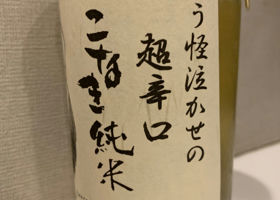 う怪泣かせの
超辛口
二才まき純米